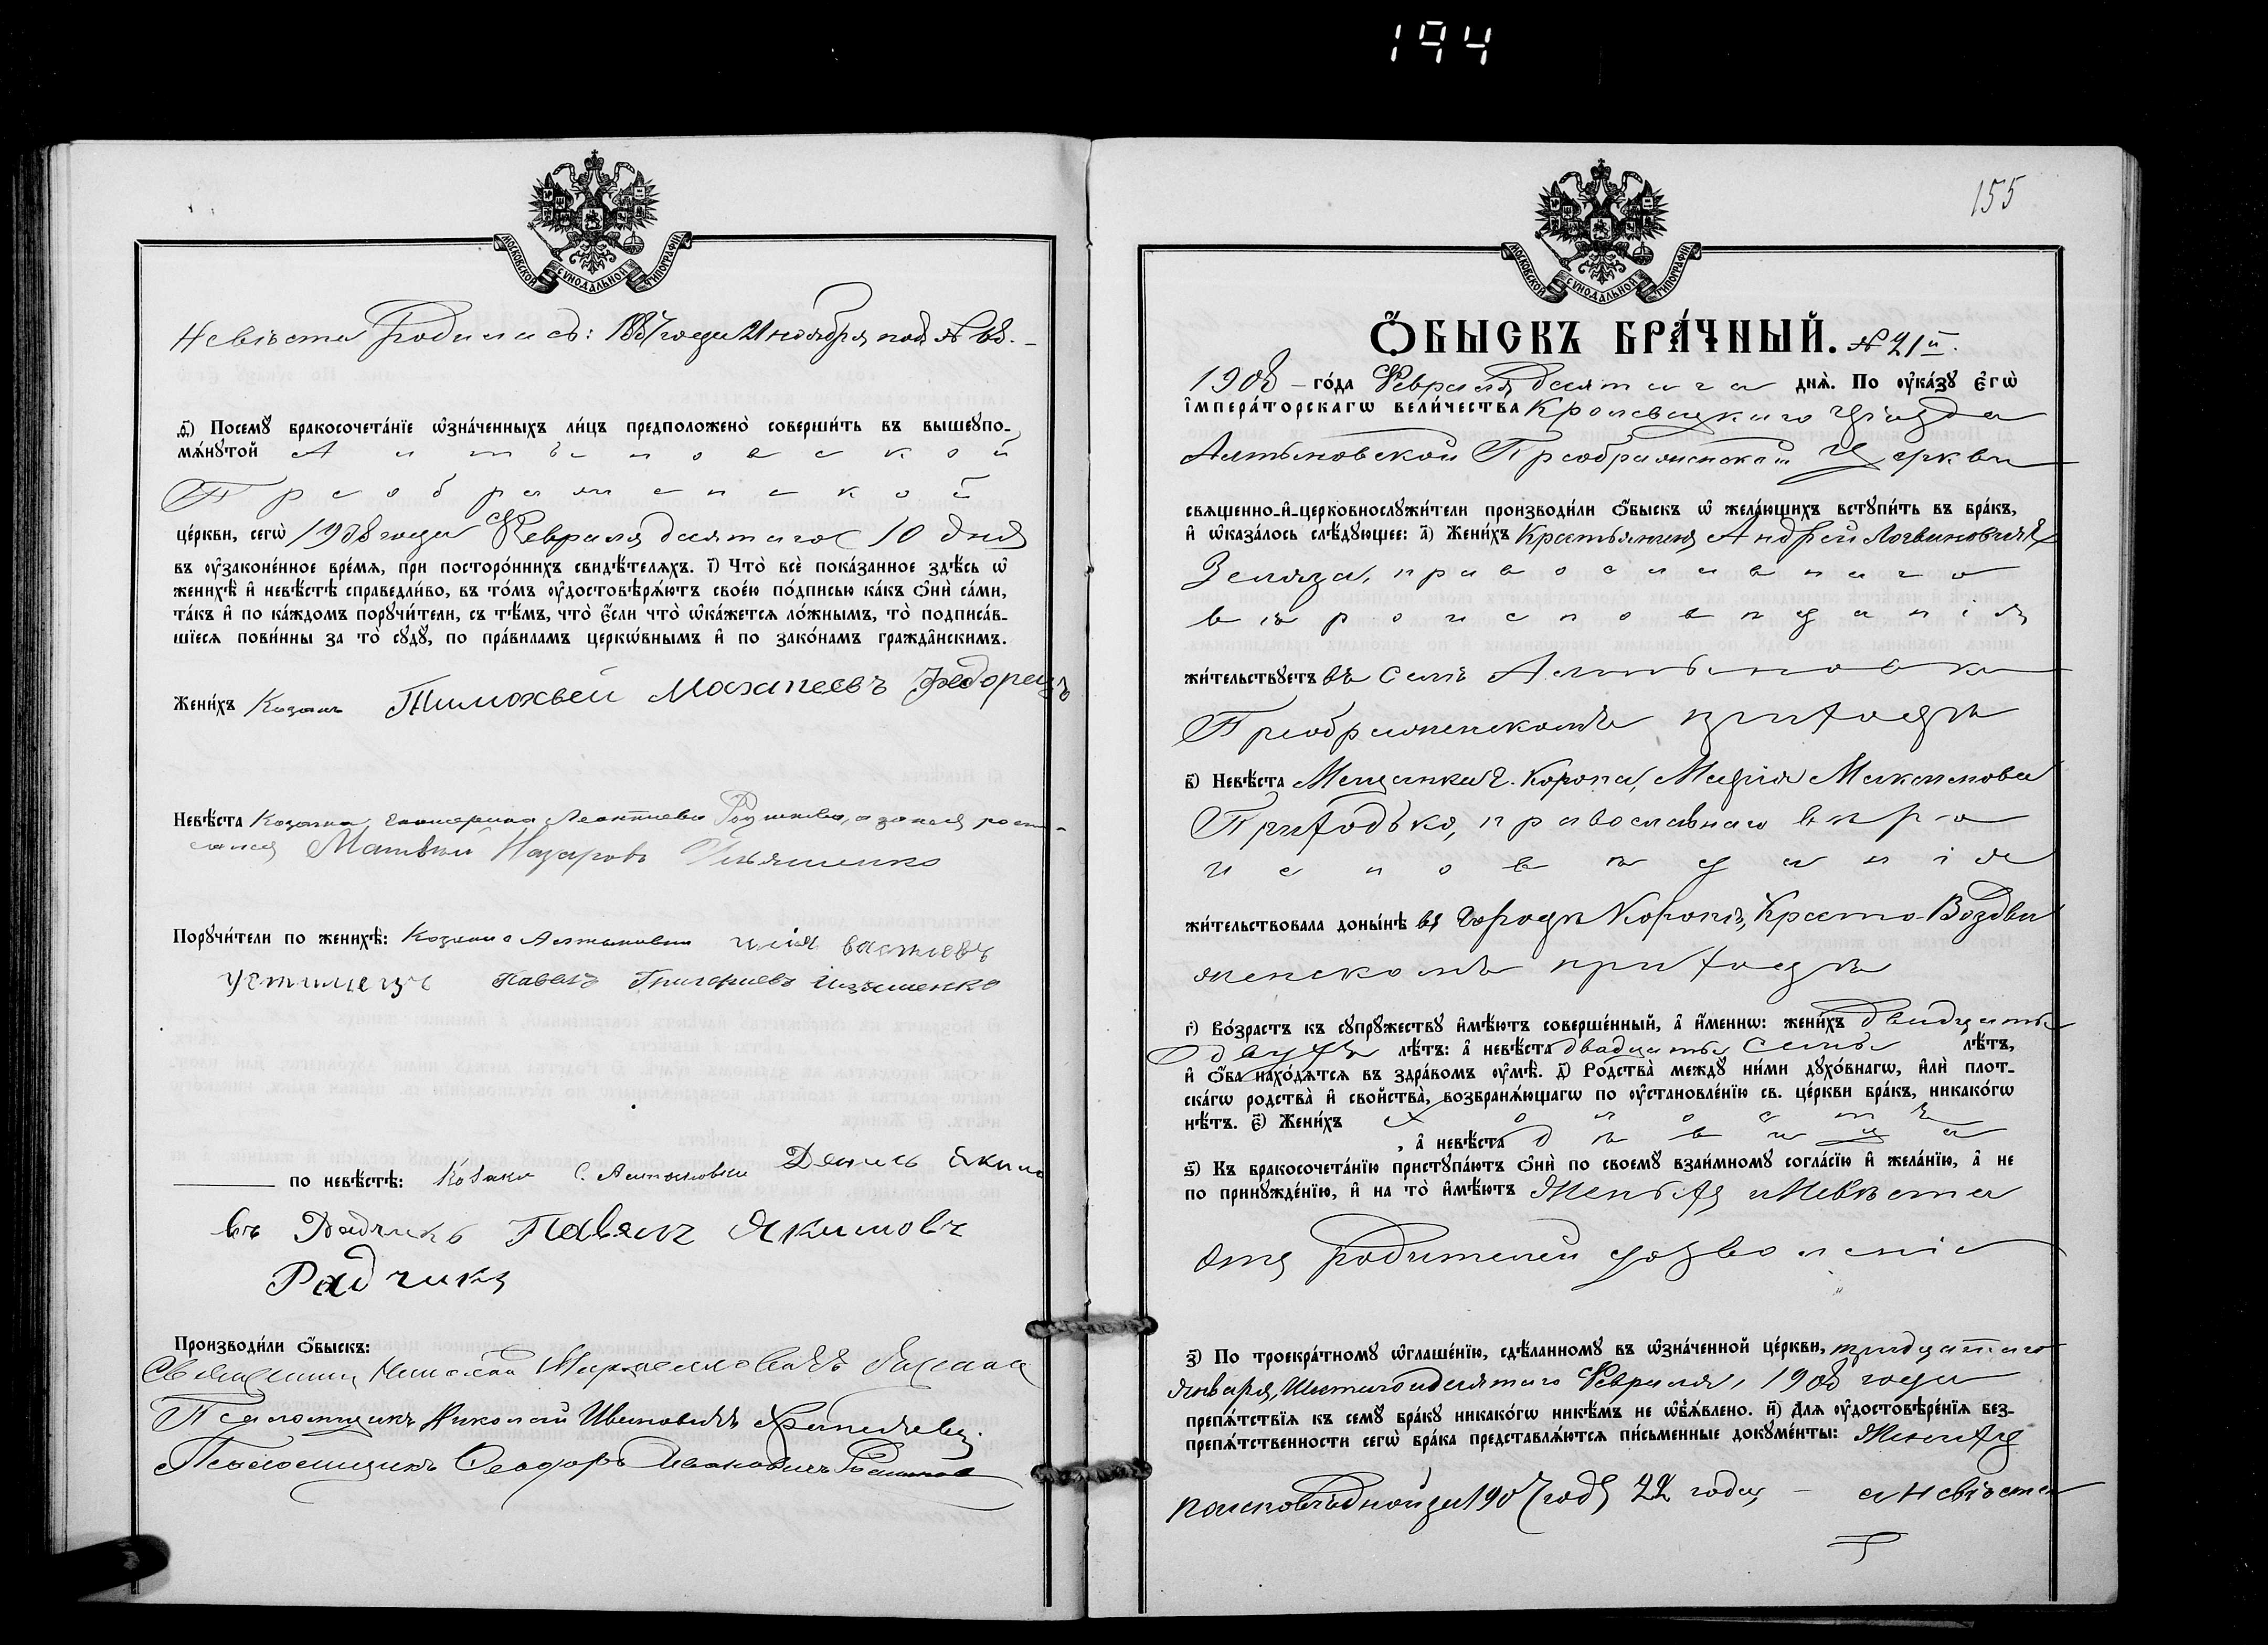 194
МОСКОВСКОЙ СѴНОДАЛЬНОЙ ТИПОГРАФІИ.
Невѣста родилась: 1887 года 21 ноября, подъ №
ѳ҃) Посемꙋ̀ бракосочета́нїе ѡ҆зна́ченныхъ ли́цъ предположено̀ соверши́ть въ вышеупо-
мѧ́нꙋтой Алтыновской
Преображенской
це́ркви, сегѡ̀ 1908 года Февраля десятаго 10 дня
въ ᲂу҆законе́нное вре́мѧ, при посторо́ннихъ свидѣ́телѧхъ. і҃) Что̀ всѐ пока́занное здѣ́сь ѡ҆
женихѣ̀ и҆ невѣ́стѣ справедли́во, въ то́мъ ᲂу҆достовѣрѧ́ютъ свое́ю по́дписью ка́къ ѻ҆нѝ са́ми,
та́къ и҆ по ка́ждомъ порꙋчи́тели, съ тѣ́мъ, что̀ є҆́сли что̀ ѡ҆ка́жетсѧ ло́жнымъ, то̀ подписа́в-
шїесѧ пови́нны за то̀ сꙋдꙋ̀, по пра́виламъ церкѡ́внымъ и҆ по зако́намъ гражда̂нскимъ.
Жени́хъ Козакъ Тимофѣй Федорецъ
Невѣ́ста Козачка Екатерина Леонтиева а за нея роспи-
сался Матвѣй Назаровъ Ильяшенко
Порꙋчи́тели по женихѣ̀: Козаки с Алтыновки илія васильевъ
устименъ Павелъ Григориевъ Ильяшенко
по невѣ́стѣ: Козаки С. Алтыновки Денисъ Якимо
въ Радчикъ Павелъ Якимовъ
Радчикъ
Производи́ли ѻ҆́быскъ:
Священникъ Николай
Псаломщикъ Николай Ивановичъ
Псаломщикъ Феодоръ Ивановичъ
155
МОСКОВСКОЙ СѴНОДАЛЬНОЙ ТИПОГРАФІИ.
Ѻ҆́БЫСКЪ БРА́ЧНЫЙ. № 21й.
1908 – го́да Февраля десятаго днѧ̀. По ᲂу҆ка́зꙋ Є҆гѡ̀
і҆мпера́торскагѡ вели́чества Кролевецкаго Уѣзда
Алтыновской Преображенской Церкви
свѧщенно-и҆-церковнослꙋжи́тели производи́ли ѻ҆́быскъ ѡ҆ жела́ющихъ встꙋпи́ть въ бра́къ,
и҆ ѡ҆каза́лось слѣ́дꙋющее: а҃) Жени́хъ Крестьянинъ Андрей Логвиновичъ
православнаго
вѣроисповѣданія
жи́тельствꙋетъ въ селѣ Алтыновкѣ
Преображенскомъ приходѣ
в҃) Невѣ́ста Мещанка г. Коропа, Марія Максимова
Приходько, православнаго вѣро
исповѣданія
жи́тельствовала доны́нѣ въ городѣ Коропѣ, Кресто-Воздви
женскомъ приходѣ
г҃) Во́зрастъ къ сꙋпрꙋ́жествꙋ и҆мѣ́ютъ соверше́нный, а҆ и҆́меннѡ: жени́хъ двадцати
двухъ лѣ́тъ: а҆ невѣ́ста двадцати семи лѣ́тъ,
и҆ ѻ҆́ба нахо́дѧтсѧ въ здра́вомъ ᲂу҆мѣ̀. д҃) Ро́дства междꙋ̀ ни́ми дꙋхо́внагѡ, и҆лѝ плот-
ска́гѡ родства̀ и҆ сво́йства, возбранѧ́ющагѡ по ᲂу҆становле́нїю св. це́ркви бра́къ, никако́гѡ
нѣ́тъ. є҃) Жени́хъ холостъ
, а҆ невѣ́ста дѣвица
ѕ҃) Къ бракосочета́нїю пристꙋпа́ютъ ѻ҆нѝ по своемꙋ̀ взаи́мномꙋ согла́сїю и҆ жела́нїю, а҆ не
по принꙋжде́нїю, и҆ на то̀ и҆мѣ́ютъ Женихъ и Невѣста
отъ родителей дозволеніе
з҃) По троекра́тномꙋ ѡ҆глаше́нїю, сдѣ́ланномꙋ въ ѡ҆зна́ченной це́ркви, тридцатаго
Января, Шестаго и десятаго Февраля, 1908 года
препѧ́тствїѧ къ семꙋ̀ бра́кꙋ никако́гѡ никѣ́мъ не ѡ҆б̾ѧ́влено. и҃) Длѧ ᲂу҆достовѣре́нїѧ без-
препѧ́тственности сегѡ̀ бра́ка представлѧ́ютсѧ пи́сьменные докꙋме́нты: Женихъ
по исповѣдной за 1907 годъ 22 года, – а невѣста